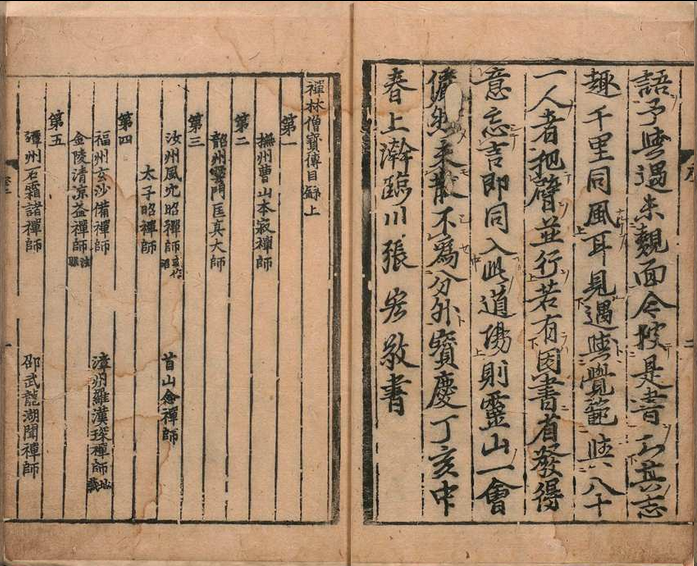 語予與遇未覿面今披是書知其志
趣千里同風耳見遇與覺範與八十
一人者把臂並行若有因書省發得
意忘言即同入此道場則靈山一會
儼然未散不為分外寶慶丁亥中
春上澣臨川張宏敬書
禪林僧寶傳目錄上
第一
撫州曹山本寂禪師
第二
韶州雲門匡真大師
第三
汝州風穴昭禪師 首山念禪師
太子昭禪師
第四
福州玄沙備禪師 漳州羅漢琛禪師地藏
金陵清涼益禪師法眼
第五
潭州石霜諸禪師 邵武龍湖聞禪師